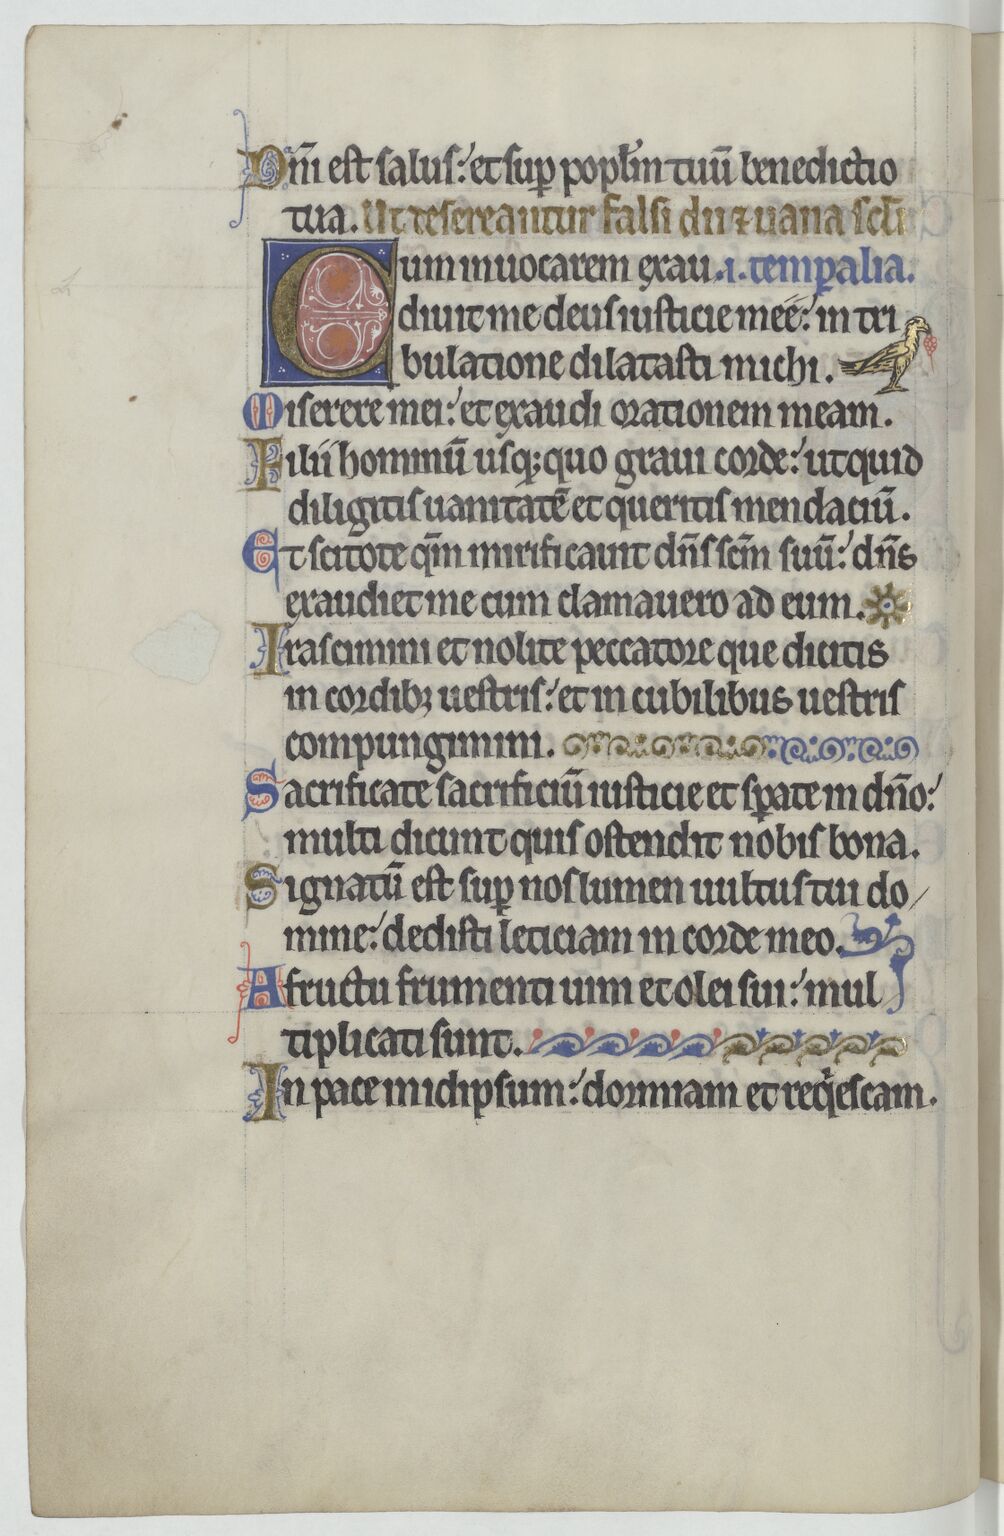 Dm̄ est salus: et sup poplm̄ tuū benedictio
tua. Ut deserantur falsi dii ⁊ uana sclī
Cum inuocarem exau .i. temporalia.
diuit me deus iusticie mee: in tri
bulatione dilatasti michi.
Miserere mei: et exaudi orationem meam.
Filii hominū usq; quo graui corde: ut quid
diligitis uanitatē et queritis mendaciū.
Et scitote qm̄ mirificauit dn̄s scm̄ suū: dn̄s
exaudiet me cum clamauero ad eum.
Irascimini et nolite peccatore que dicitis
in cordib; uestris: et in cubilibus uestris
compungimini.
Sacrificate sacrificiū iusticie et sꝑate in dn̄o:
multi dicunt quis ostendit nobis bona.
Signatū est sup nos lumen uultus tui do/
mine: dedisti leticiam in corde meo.
A fructu frumenti uini et olei sui: mul
tiplicati sunt.
In pace in idipsum: dormiam et reqͥescam.